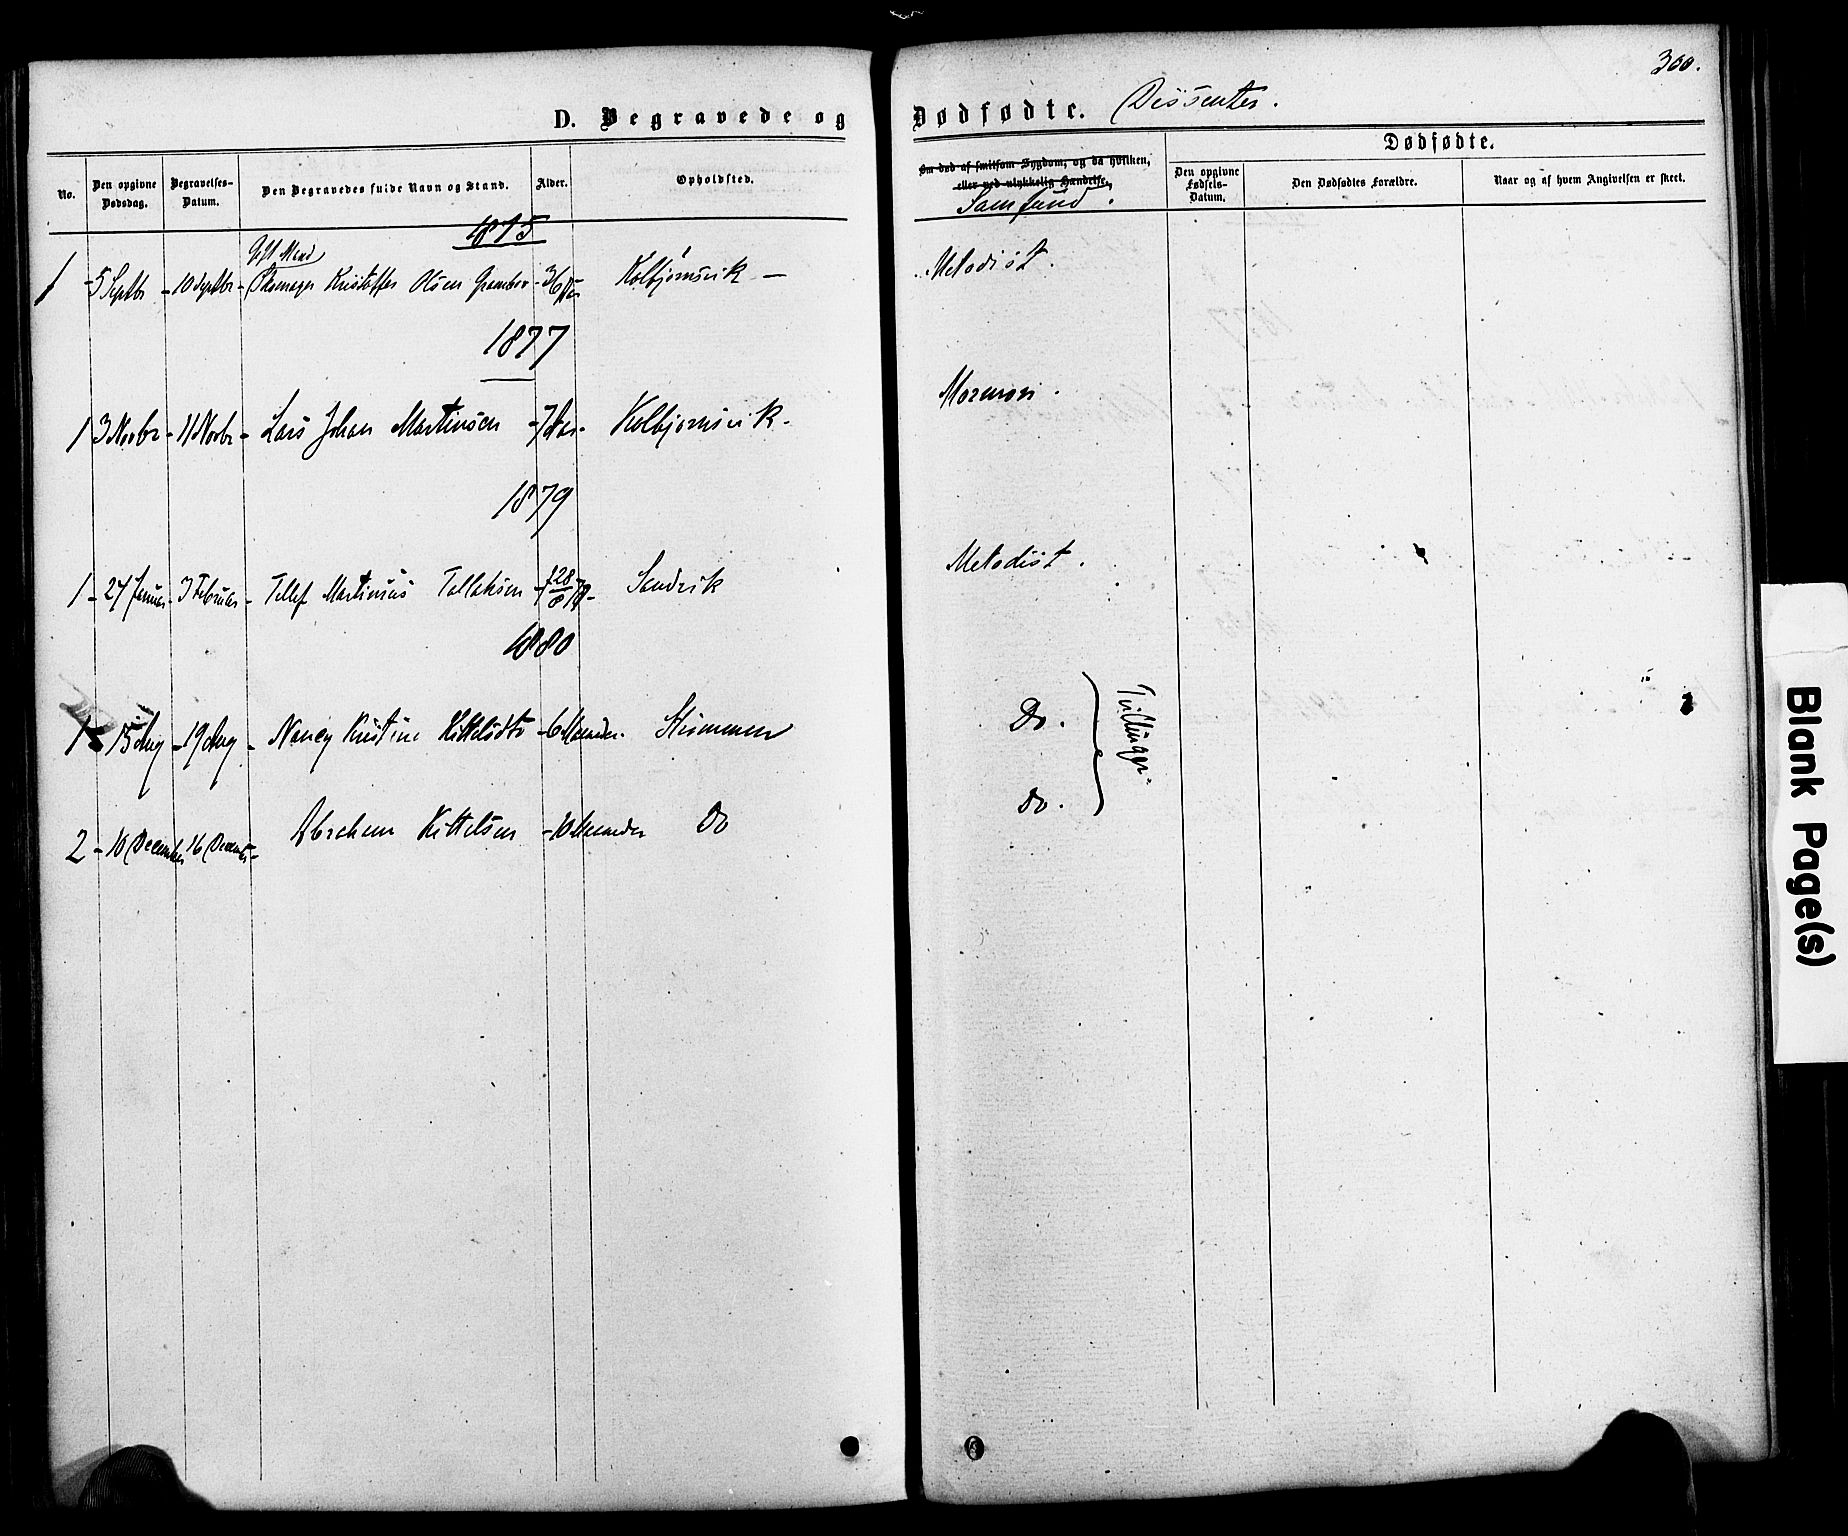 300.
D. Begravede og Dødfødte. Dissenter.
No. Den opgivne Dødsdag. Begravelses-Datum. Den Begravedes fulde Navn og Stand. Alder. Opholdsted. Om død af smitsom Sygdom, og da hvilken, eller ved ulykkelig Hændelse. Samfund. Dødfødte.
Den opgivne Fødsels-Datum. Den Dødfødtes Forældre. Naar og af hvem Angivelsen er skeet.
1875
Gift Mand
1 5 Septbr - 10 Septbr - Kristoffer Olsen - 36 Aar Kolbjørnsvik - Metodist.
1877
1 3 Novbr - 11 Novbr - Lars Johan Martinsen - 7 Aar - Kolbjørnsvik. Mormon.
1879
1 - 27 Januar - 3 Februar - Tellef Martinius Tallaksen - f 28/8 78 - Sandvik Metodist.
1880
1 - 15 Aug - 19 Aug - Nancy Kristine Kittelsdtr - 6 Maaneder. Strømmen Do. Tvillinger
2 - 10 December 16 December - Abraham Kittelsen - 10 Maaneder Do Do.
Blank Page(s)